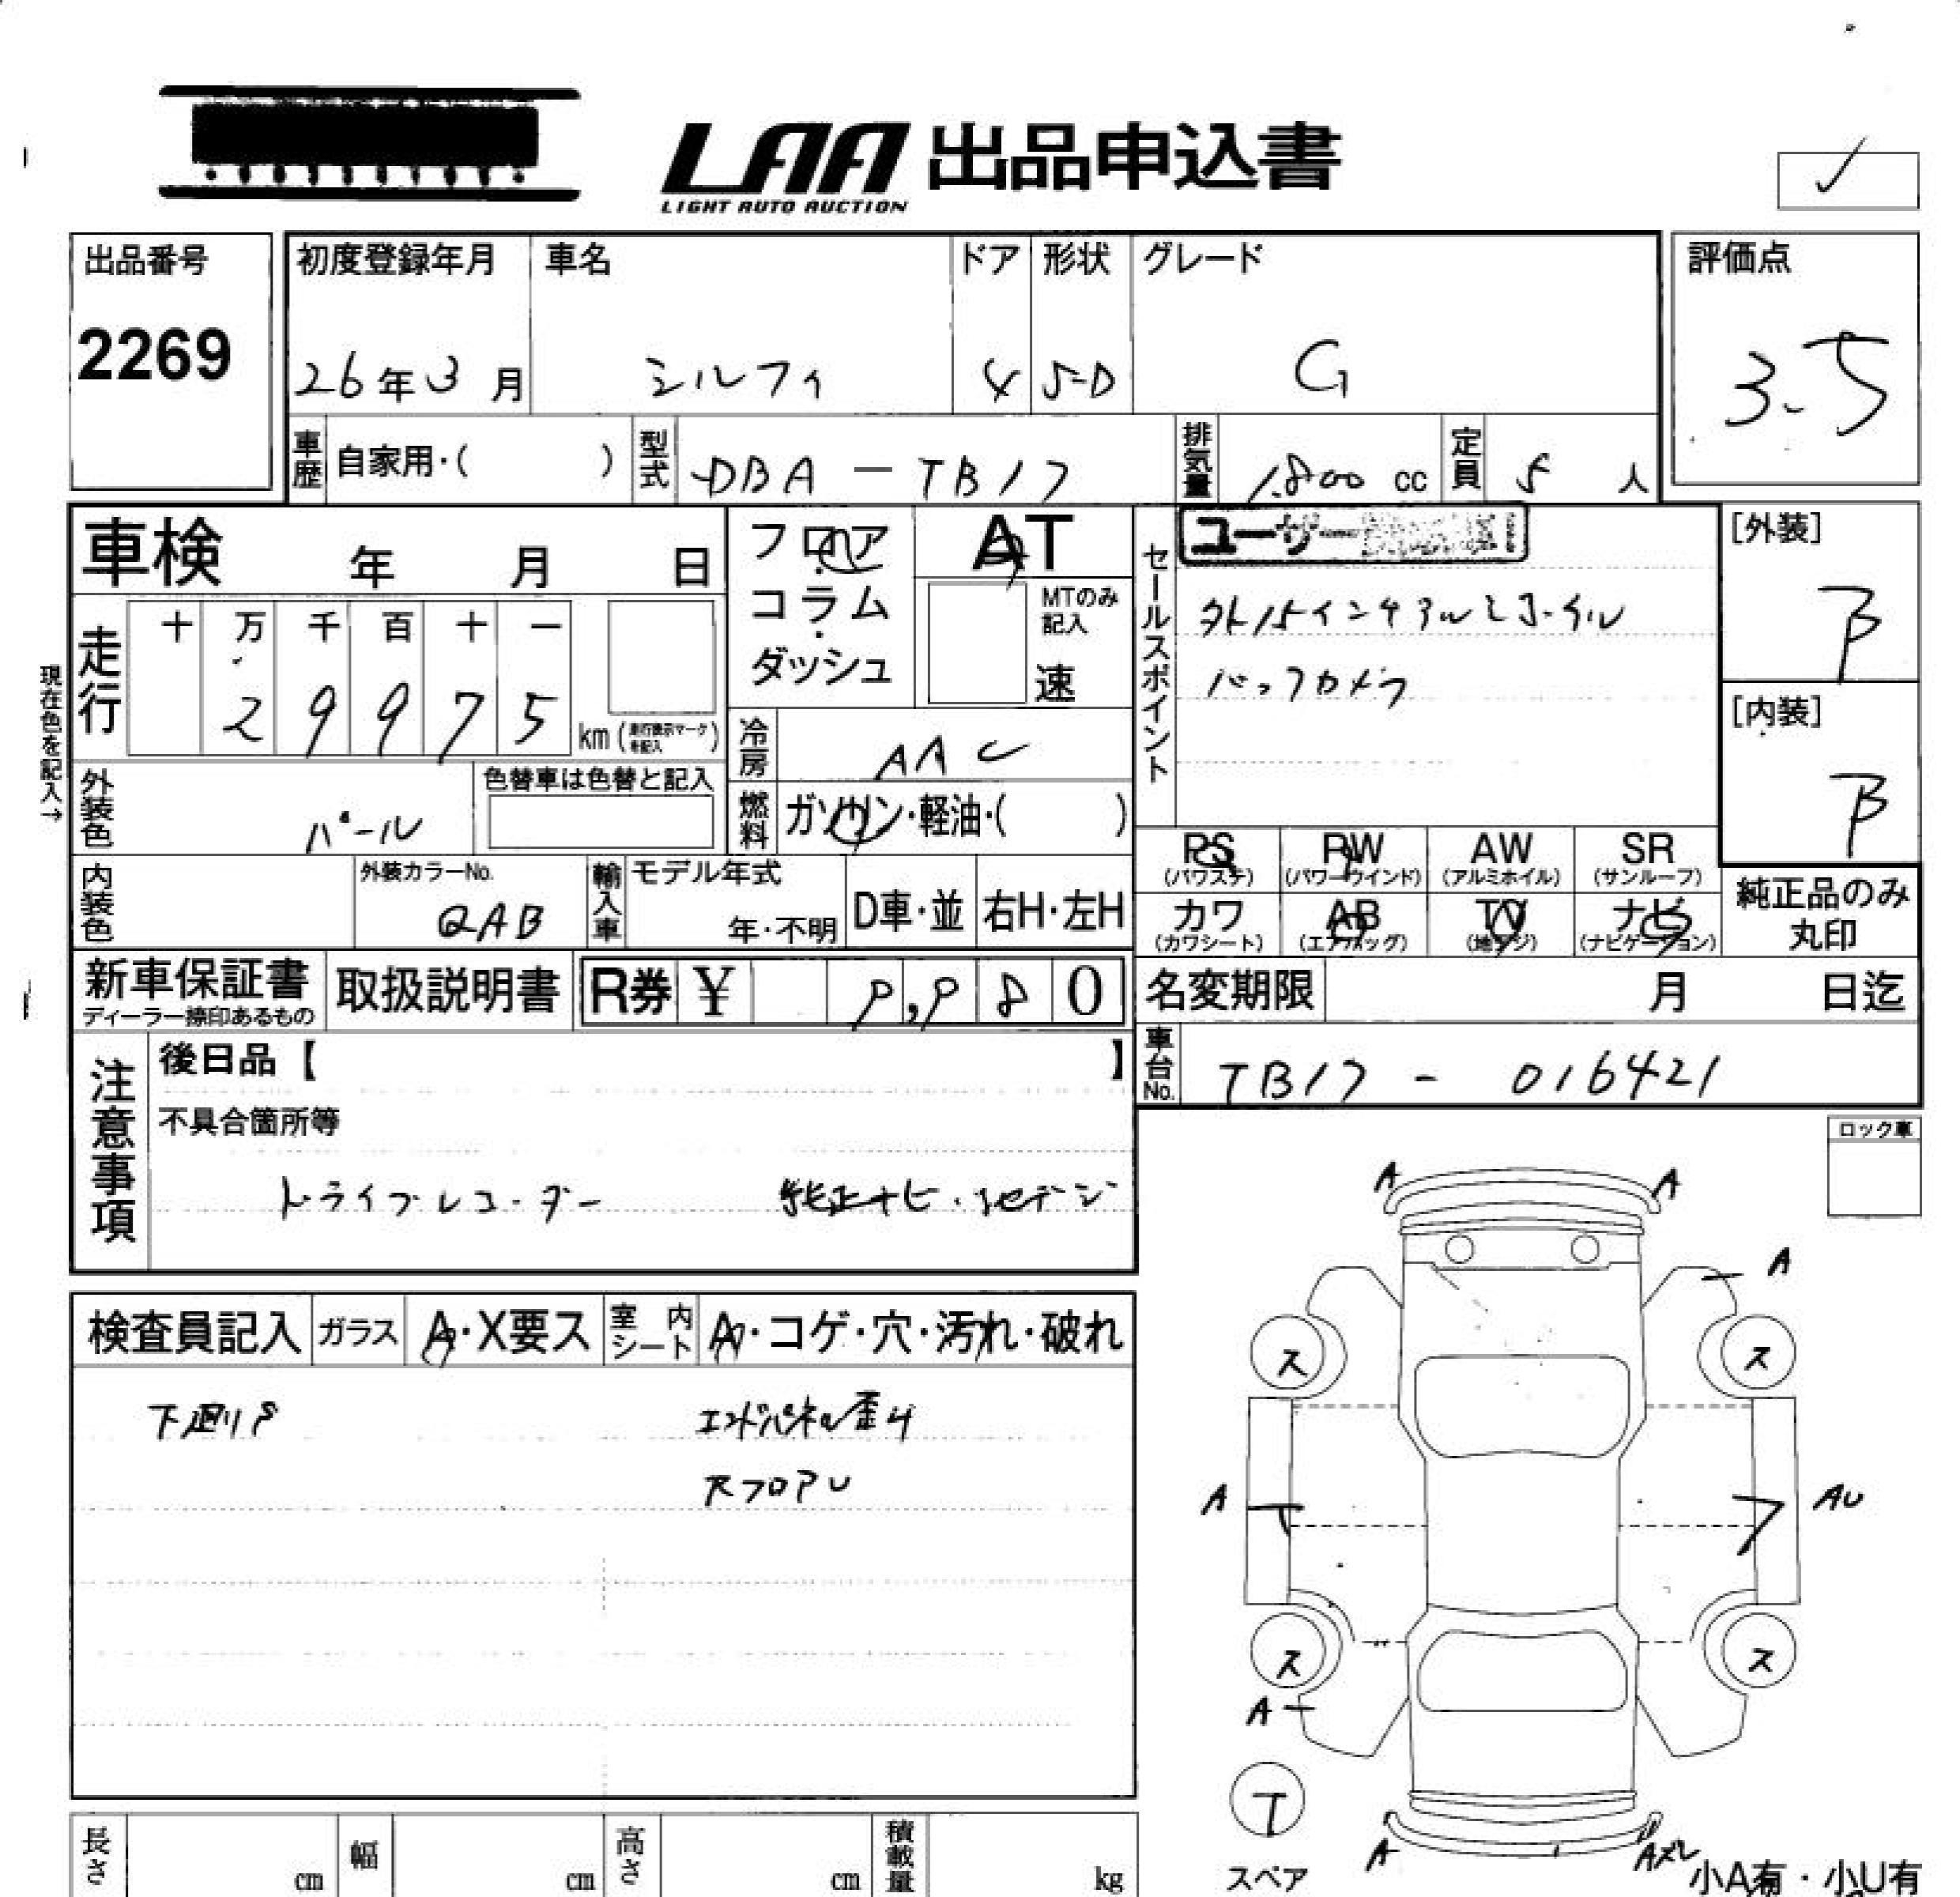 LAA 出品申込書
LIGHT AUTO AUCTION
出品番号
2269
初度登録年月
26年3月
車名
シルフィ
ドア
4
形状
S-D
グレード
G
評価点
3.5
車歴
自家用・( )
型式
DBA-TB17
排気量
1.800 cc
定員
5 人
車検 年 月 日
フロア・コラム・ダッシュ
AT
MTのみ記入
速
セールスポイント
ユーザー
バックカメラ
[外装]
B
[内装]
B
現在色を記入→
走行
十 万 千 百 十 一
2 9 9 7 5
km(走行表示マークを記入)
冷房
AAC
外装色
パール
色替車は色替と記入
燃料
ガソリン・軽油・( )
内装色
外装カラーNo.
QAB
輸入車
モデル年式
年・不明
D車・並
右H・左H
PS
(パワステ)
PW
(パワーウインド)
AW
(アルミホイル)
SR
(サンルーフ)
カワ
(カワシート)
AB
(エアバッグ)
TV
(地デジ)
ナビ
(ナビゲーション)
純正品のみ
丸印
新車保証書
ディーラー捺印あるもの
取扱説明書
R券 ¥ 9,980
名変期限 月 日迄
車台No.
TB17 - 016421
注意事項
後日品【 】
不具合箇所等
ドライブレコーダー 純正ナビ・地デジ
ロック車
検査員記入
ガラス
A・X要ス
室内シート
A・コゲ・穴・汚れ・破れ
下廻りS
エンドパネル歪み
RフロアU
A A
A
ス ス
A AU
ス ス
A
T
スペア
A
小A有・小U有
長さ cm
幅 cm
高さ cm
積載量 kg